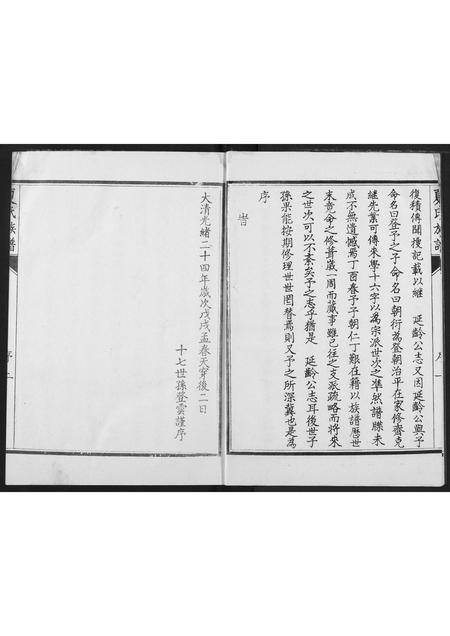 復積傳聞搜記載以繼　延齡公志又因延齡公與予
命名曰登予之子命名曰朝衍為登朝治平在家修齊克
繼先業可傳來學十六字以為宗派世次之準然譜牒未
成不無遺憾焉丁酉春予子朝仁丁艱在籍以族譜歷世
未竟命之修葺歲一周而蕆事雖已往之支派疏略而將來
之世次可以不紊矣予之志乎猶是　延齡公志耳後世子
孫果能按期修理世世罔替焉則又予之所深冀也是為
序
旹
大清光緒二十四年歲次戊戌孟春天穿後二日
十七世孫登雲謹序
氏族譜
序二